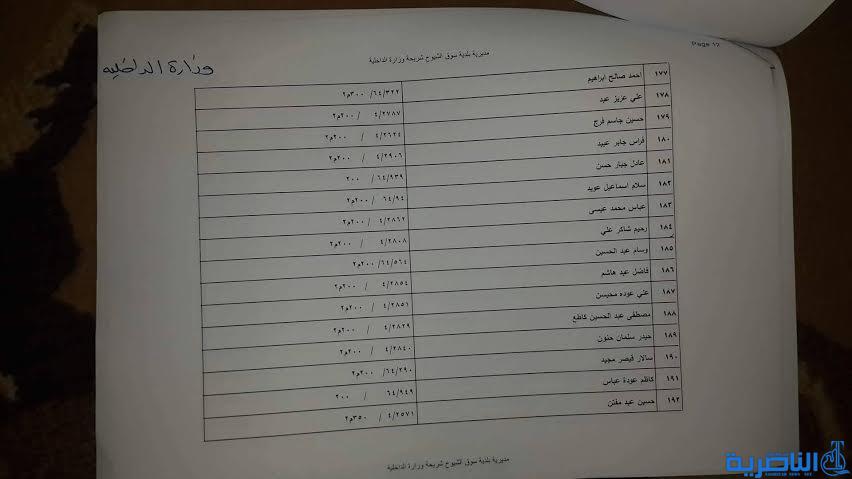 Page 12
وزارة الداخليه
مديرية بلدية سوق الشيوخ شريحة وزارة الداخلية
١٧٧ احمد صالح ابراهيم ٦٤/٣٢٢/ ٣٠٠م٢
١٧٨ علي عزيز عبد ٤/٢٧٨٧ / ٢٠٠م٢
١٧٩ حسين جاسم فرج ٤/٢٦٢٤ / ٢٠٠م٢
١٨٠ فراس جابر عبيد ٤/٢٩٠٦ / ٢٠٠م٢
١٨١ عادل جبار حسن ٦٤/٩٣٩/ ٢٠٠
١٨٢ سلام اسماعيل عويد ٦٤/٩٤/ ٢٠٠م٢
١٨٣ عباس محمد عيسى ٤/٢٨٦٢ / ٢٠٠م٢
١٨٤ رحيم شاكر علي ٤/٢٨٠٨ / ٢٠٠م٢
١٨٥ وسام عبد الحسين ٦٤/٥٦٤/ ٢٠٠م٢
١٨٦ فاضل عبد هاشم ٤/٢٨٥٤ / ٢٠٠م٢
١٨٧ علي عوده محيسن ٤/٢٨٥١ / ٢٠٠م٢
١٨٨ مصطفى عبد الحسين كاطع ٤/٢٨٢٩ / ٢٠٠م٢
١٨٩ حيدر سلمان حنون ٤/٢٨٤٠ / ٢٠٠م٢
١٩٠ سالار قيصر مجيد ٦٤/٢٩٠/ ٢٠٠م٢
١٩١ كاظم عودة عباس ٦٤/٩٤٩ / ٢٠٠
١٩٢ حسين عبد مفتن ٤/٢٥٧١ / ٣٥٠م٢
مديرية بلدية سوق الشيوخ شريحة وزارة الداخلية
الناصرية